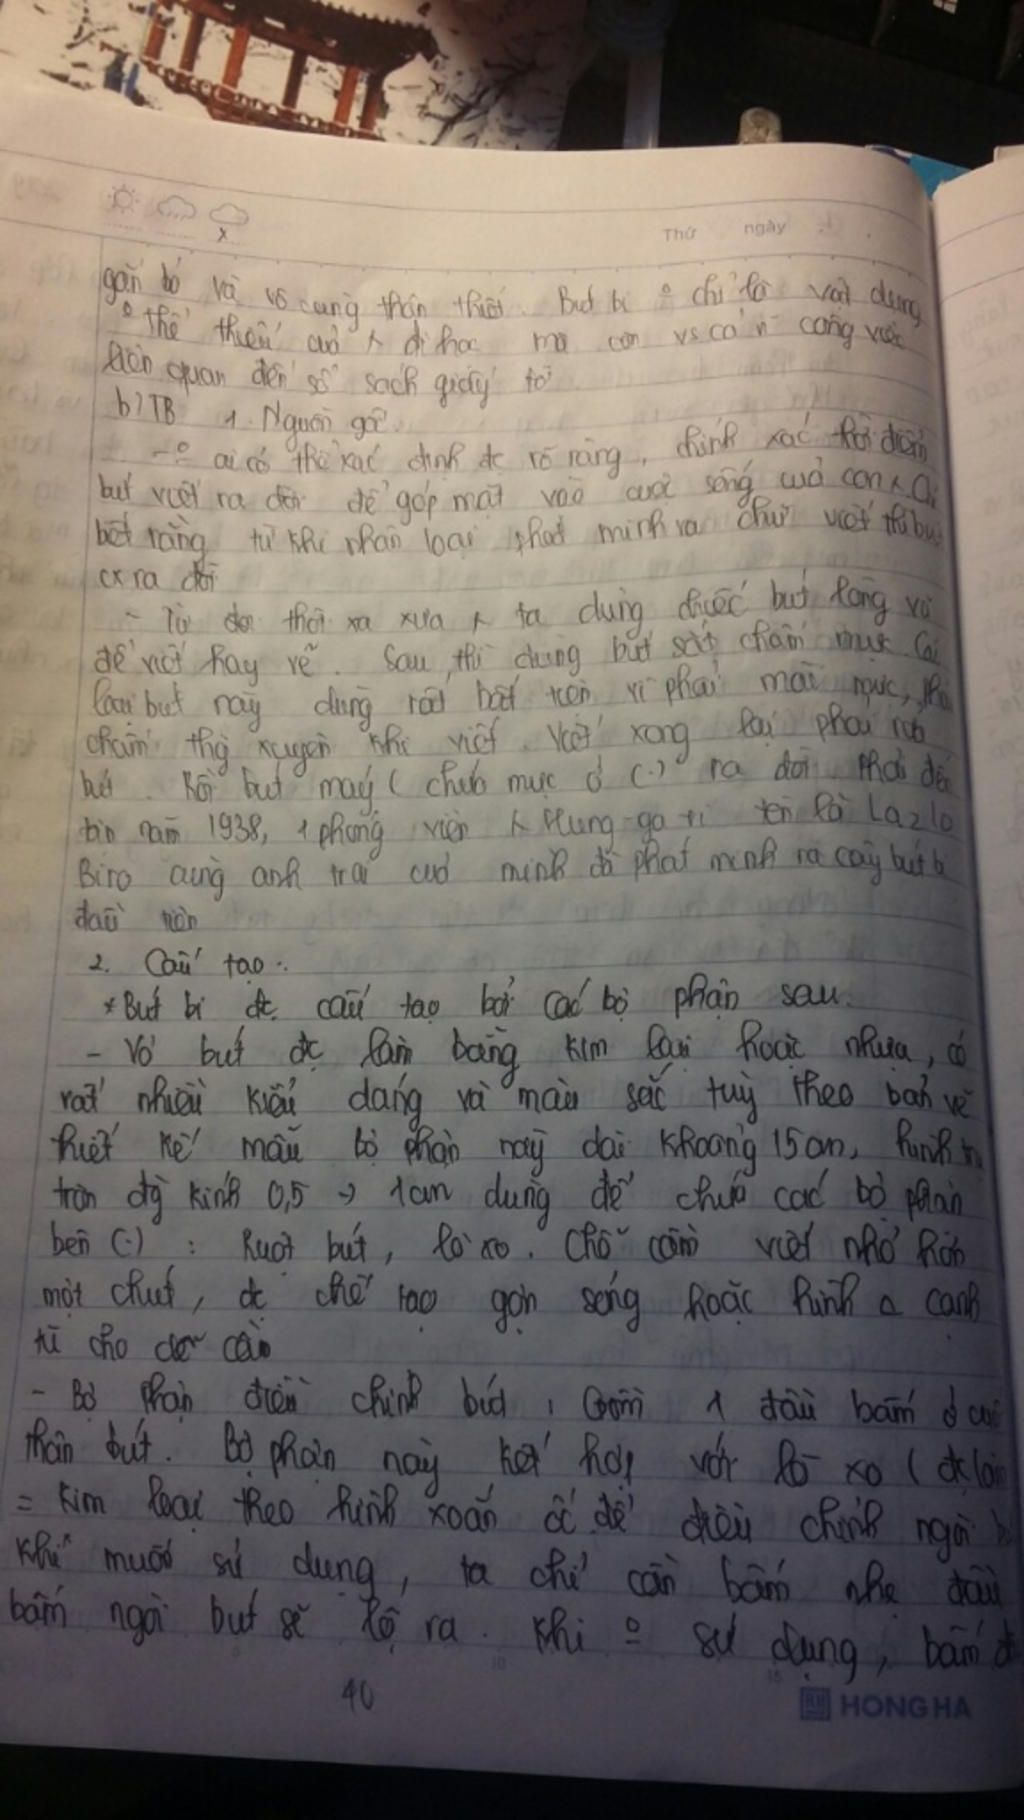 x
Thứ ngày
gắn bó và vô cùng thân thiết. Bút bi º chỉ là vật dụng
º thể thiếu của đi học mà còn vs cả n~ công việc
liên quan đến sổ sách giấy tờ
b) TB 1. Nguồn gốc
- º ai có thể xác định đc rõ ràng, chính xác thời điểm
bút viết ra đời để góp mặt vào cuộc sống của con
biết rằng từ khi nhân loại phát minh ra chữ viết thì bút
cx ra đời
- Từ thời xa xưa ta dùng chiếc bút lông vũ
để viết hay vẽ. Sau, thì dùng bút sắt chấm mực. Các
loại bút này dùng rất bất tiện vì phải mài mực, phải
chấm thg xuyên khi viết. Viết xong lại phải rửa
bút. Rồi bút máy (chứa mực ở (.) ra đời. Phải đến
năm 1938, 1 phóng viên Hung-ga-ri tên là Lazlo
Biro cùng anh trai của mình đã phát minh ra cây bút bi
đầu tiên
2. Cấu tạo:
* Bút bi đc cấu tạo bởi các bộ phận sau.
- Vỏ bút đc làm bằng kim loại hoặc nhựa, có
rất nhiều kiểu dáng và màu sắc tuỳ theo bản vẽ
thiết kế mẫu bộ phận này dài khoảng 15 cm, hình
tròn đg kính 0,5 -> 1cm dùng để chứa các bộ phận
bên (.) : Ruột bút, lò xo. Chỗ cầm viết nhỏ hơn
một chút, đc chế tạo gợn sóng hoặc hình cạnh
tù cho dễ cầm
- Bộ phận điều chỉnh bút: Gồm 1 đầu bấm ở cuối
thân bút. Bộ phận này kết hợp với lò xo (đc làm
= kim loại theo hình xoắn ốc để điều chỉnh ngòi
khi muốn sử dụng, ta chỉ cần bấm nhẹ đầu
bấm ngòi bút sẽ lộ ra. Khi º sử dụng, bấm
10 15
40
HONG HA